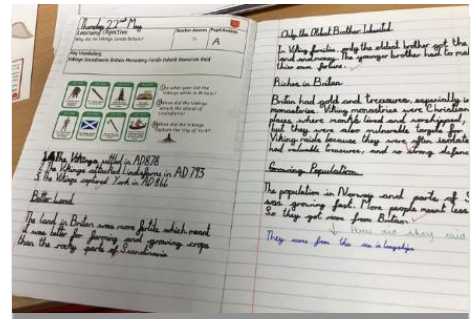 Thursday 22nd May
Learning Objective
Why did the Vikings invade Britain?
Teacher Assess
Pupil Assess
A
Key Vocabulary
Vikings Scandinavia Britain Monastery Raids Inherit Resources Raid
In what year did the Vikings settle in Britain?
When did the Vikings attack the island of Lindisfarne?
When did the Vikings capture the city of York?
1 The Vikings settled in AD878
The Vikings attacked Lindisfarne in AD 793
3 The Vikings captured York in AD 866
Better Land
The land in Britain was more fertile which meant
it was better for farming and growing crops
than the rocky parts of Scandinavia
Only the Oldest Brother Inherited
In Viking families, only the oldest brother got the
land and money. The younger brother had to
their own fortune.
Riches in Britain
Britain had gold and treasures, especially in
monasteries. Viking monasteries were Christian
places where monks lived and worshipped,
but they were also vulnerable targets for
Viking raids because they were often isolated
had valuable treasures, and no strong defence
Growing Population
The population in Norway and parts of S
was growing fast. More people meant less
So they got more from Britain.
How did they raid
They came from the sea in longships